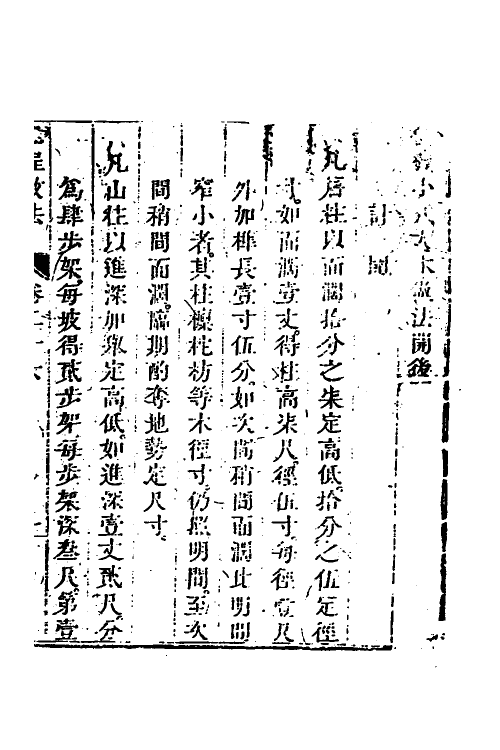 小式大木做法開後
計開
凡檐柱以面闊拾分之柒定高低拾分之伍定徑
寸如面闊壹丈得柱高柒尺徑伍寸每徑壹尺
外加榫長壹寸伍分如次間稍間面闊比明間
窄小者其柱檁柁枋等木徑寸仍照明間至次
間稍間面闊臨期酌奪地勢定尺寸
凡山柱以進深加舉定高低如進深壹丈貳尺分
為肆步架每坡得貳步架每步架深叁尺第壹
工程做法
卷二十六